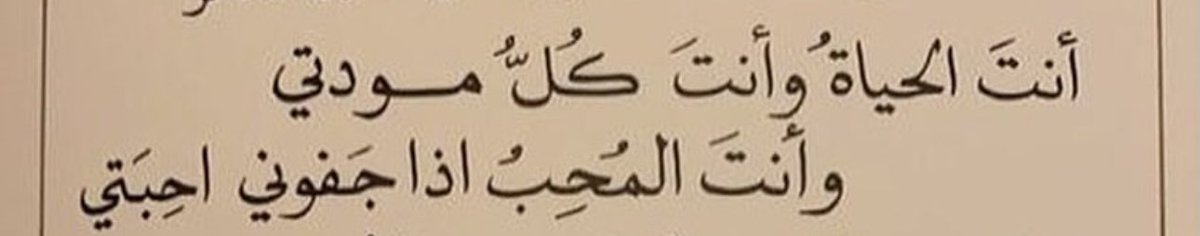 أنتَ الحياةُ وأنتَ كُلُّ مـــودتي
وأنتَ المُحِبُ اذا جَفوني احِبَتي